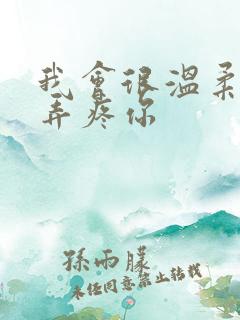 我會很溫柔
弄疼你
孫雨朦
未经同意禁止转载